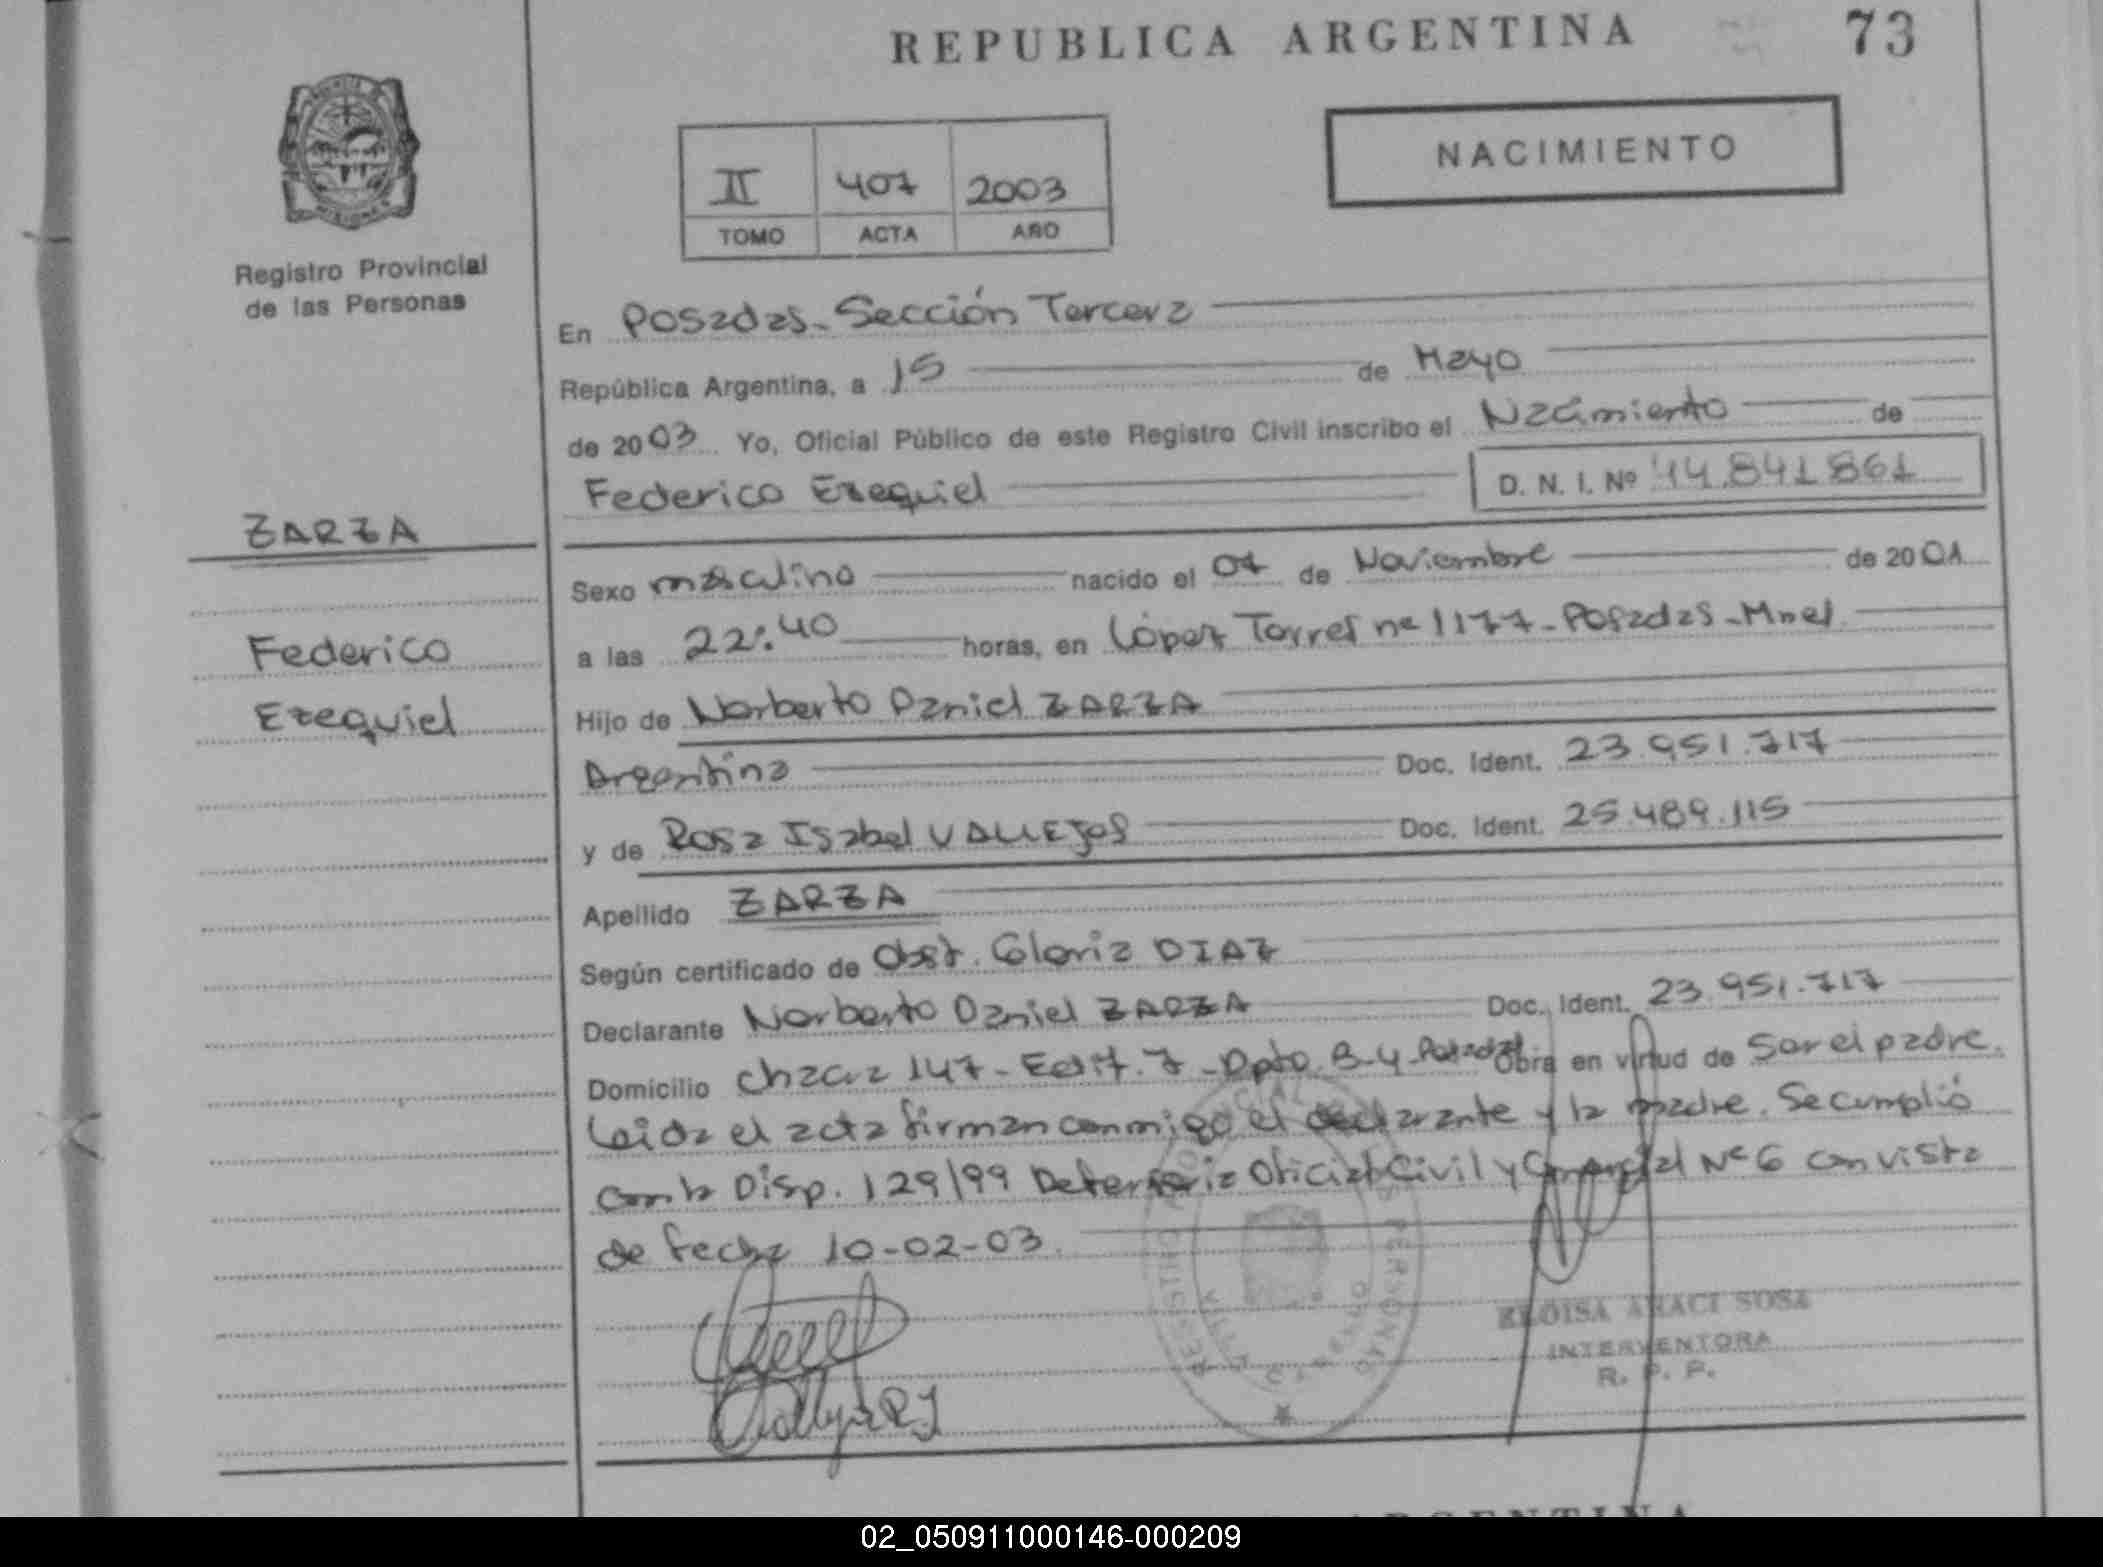 REPUBLICA ARGENTINA
73
NACIMIENTO
II 407 2003
TOMO ACTA AÑO
MISIONES
Registro Provincial
de las Personas
En Posadas - Sección Tercera
República Argentina, a 15 de Mayo
de 2003 Yo, Oficial Público de este Registro Civil inscribo el Nacimiento de
Federico Ezequiel D. N. I. Nº 44.841861
ZARZA
Federico
Ezequiel
Sexo masculino nacido el 07 de Noviembre de 2001
a las 22:40 horas, en López Torres nº 1177 - Posadas - Mnes
Hijo de Norberto Daniel ZARZA
Argentina Doc. Ident. 23.951.717
y de Rosa Isabel VALLEJOS Doc. Ident. 25.489.115
Apellido ZARZA
Según certificado de Obst. Gloria DIAZ
Declarante Norberto Daniel ZARZA Doc. Ident. 23.951.717
Domicilio Chacra 147 - Edif. 7 - Dpto. B-4 - Posadas Obra en virtud de Ser el padre.
Leida el acta firman conmigo el declarante y la madre. Se cumplió
con la Disp. 129/99 Defensoria Oficial Civil y Comercial Nº 6 con vista
de fecha 10-02-03.
ELOISA ARACI SOSA
INTERVENTORA
R. P. P.
ARGENTINA
02_050911000146-000209